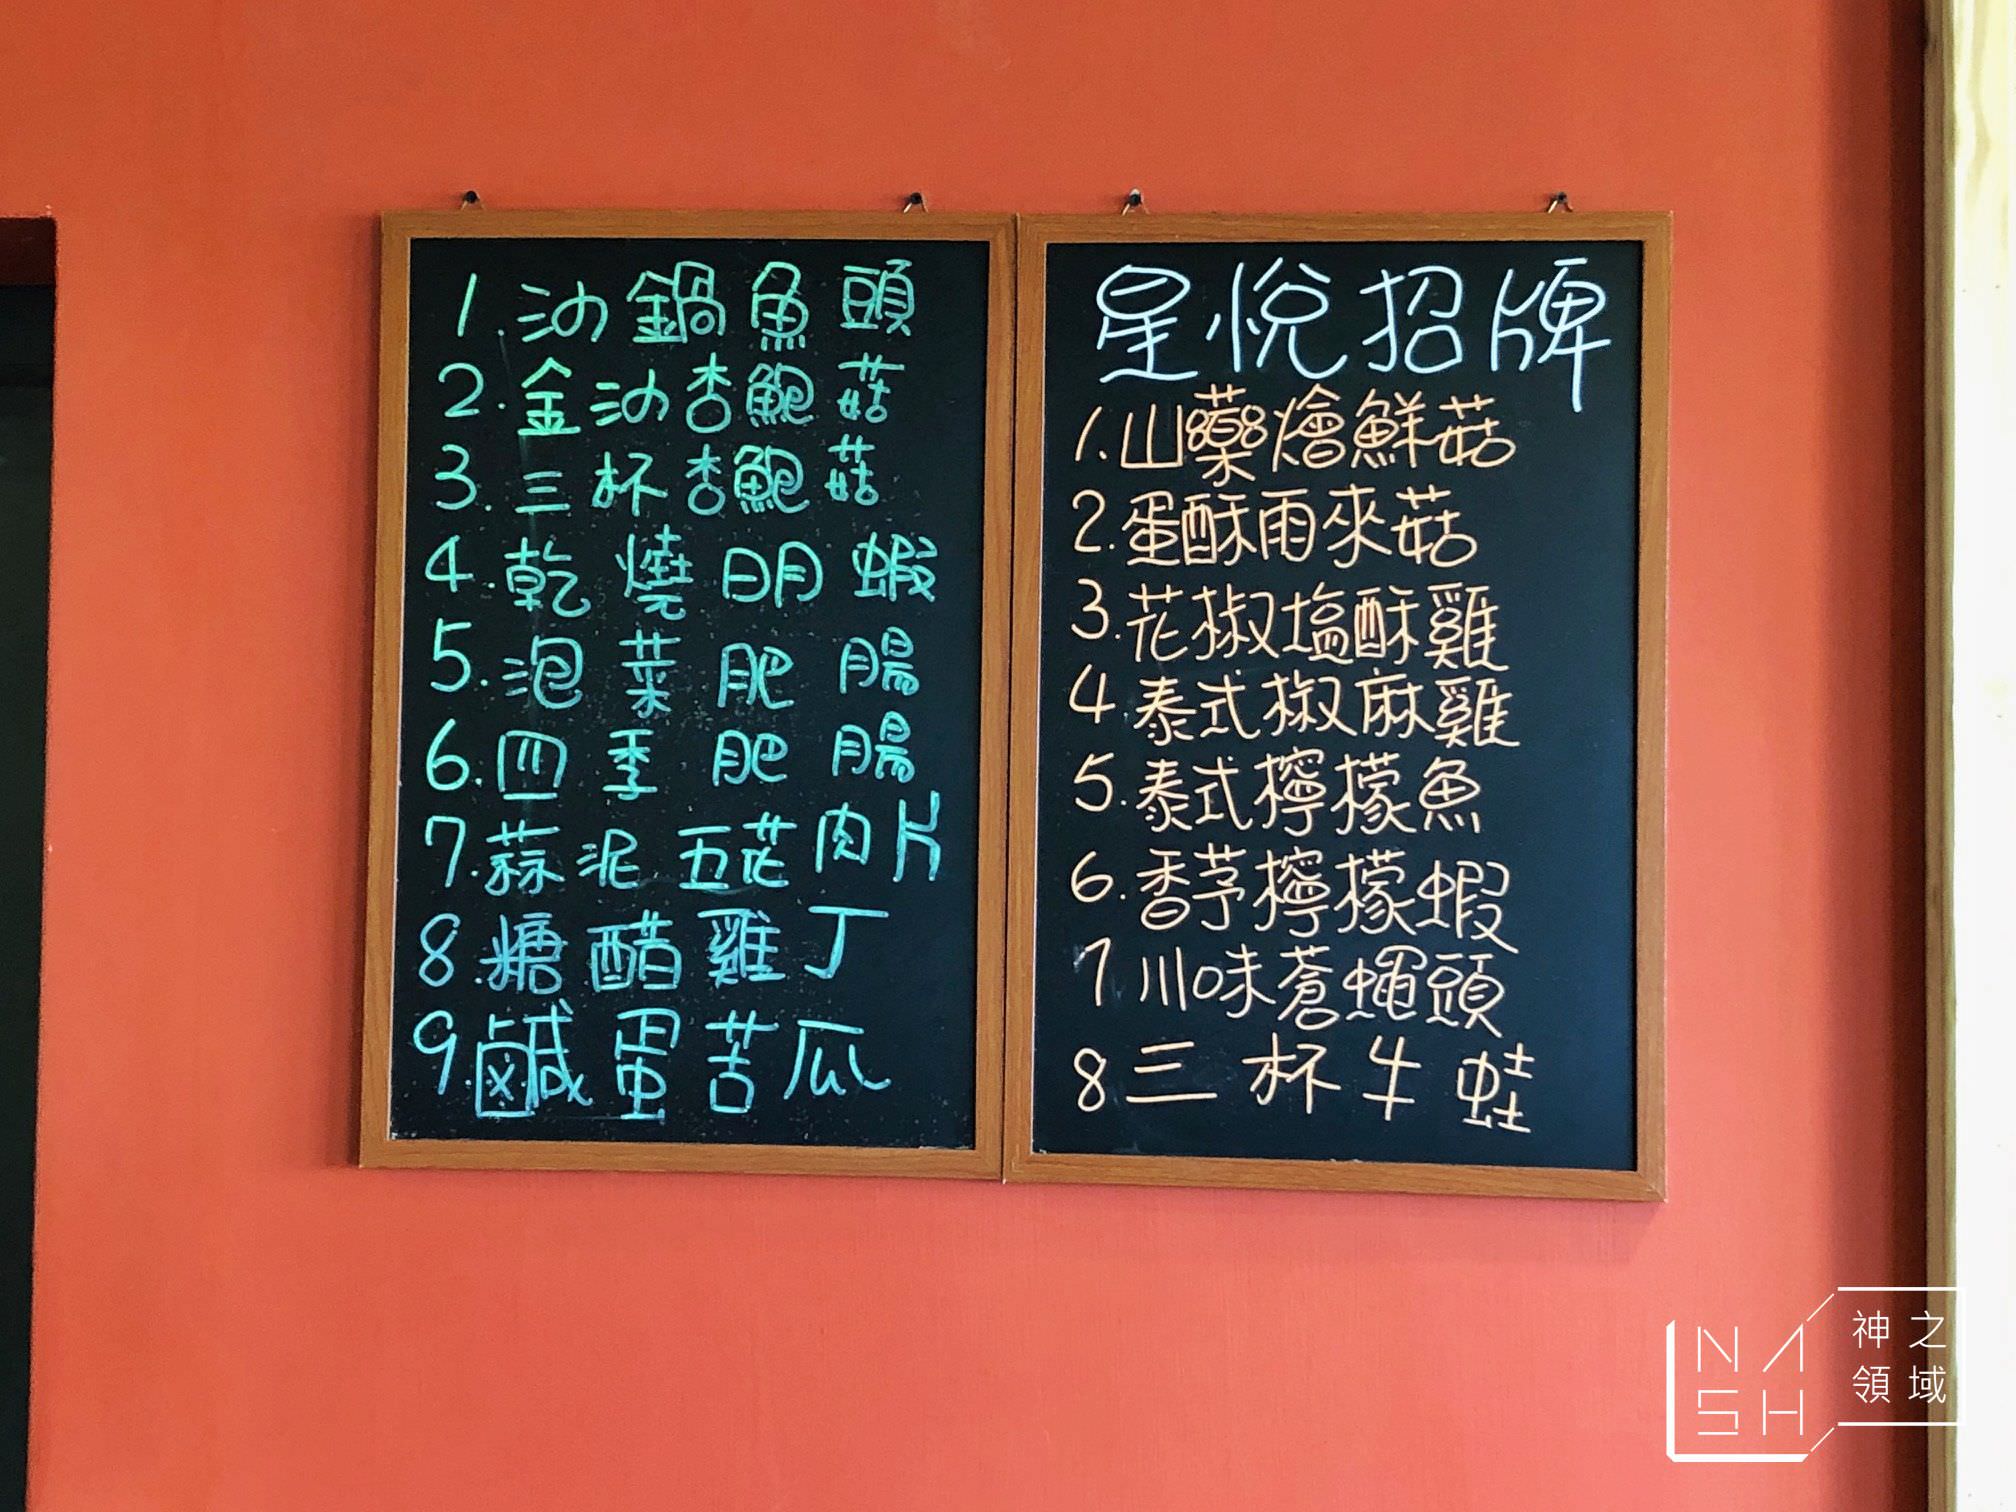 1.沙鍋魚頭
2.金沙杏鮑菇
3.三杯杏鮑菇
4.乾燒明蝦
5.泡菜肥腸
6.四季肥腸
7.蒜泥五花肉片
8.糖醋雞丁
9.鹹蛋苦瓜
星悅招牌
1.山藥燴鮮菇
2.蛋酥雨來菇
3.花椒塩酥雞
4.泰式椒麻雞
5.泰式檸檬魚
6.香茅檸檬蝦
7川味蒼蠅頭
8三杯牛蛙
NASH
神之
領域